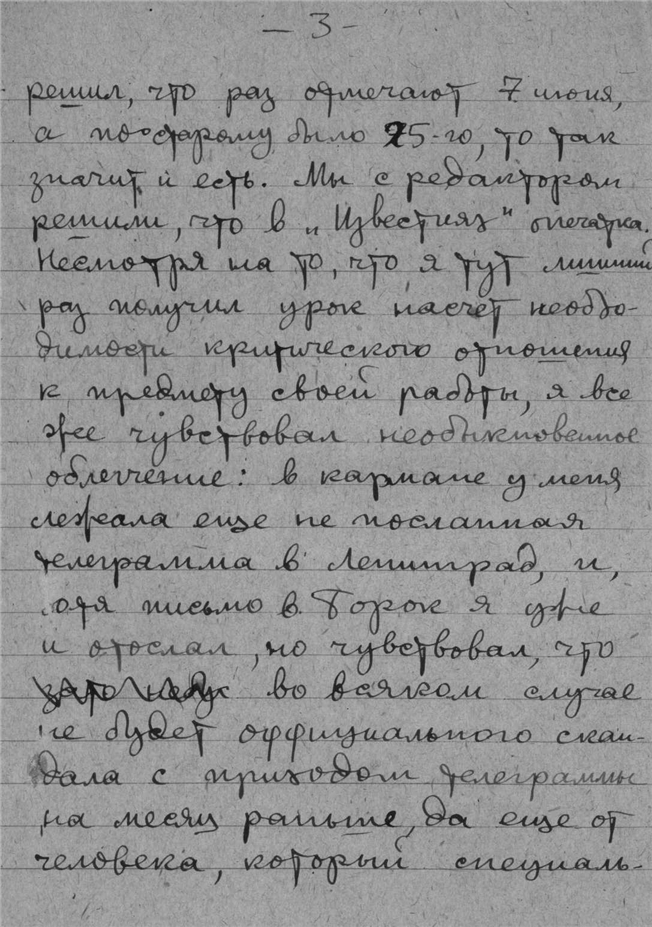 - 3 -
решил, что раз отмечают 7 июня,
а по старому было 25-го, то так
значит и есть. Мы с редактором
решили, что в „Известиях" опечатка.
Несмотря на то, что я тут лишний
раз получил урок насчет необхо-
димости критического отношения
к предмету своей работы, я все
же чувствовал необыкновенное
облегчение: в кармане у меня
лежала еще не посланная
телеграмма в Ленинград, и,
хотя письмо в Торок я уже
и отослал, но чувствовал, что
во всяком случае
не будет оффициального скан-
дала с приходом телеграммы
на месяц раньше, да еще от
человека, который специаль-